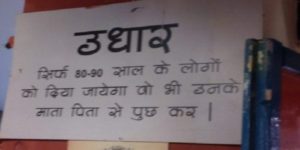 उधार
सिर्फ 80-90 साल के लोगों
को दिया जायेगा वो भी उनके
माता पिता से पुछ कर |